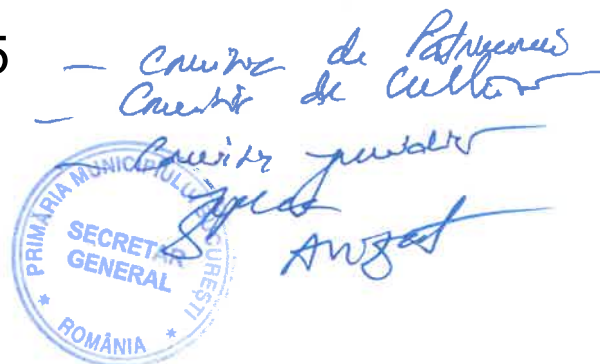 5
— Comisia de Patrimoniu
— Comisia de Cultură
— Comisia juridică
PRIMĂRIA MUNICIPIULUI BUCUREȘTI
SECRETAR
GENERAL
* ROMÂNIA *